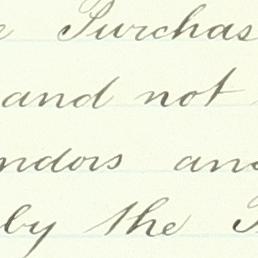 e Purchas
and not
ndors and
by the